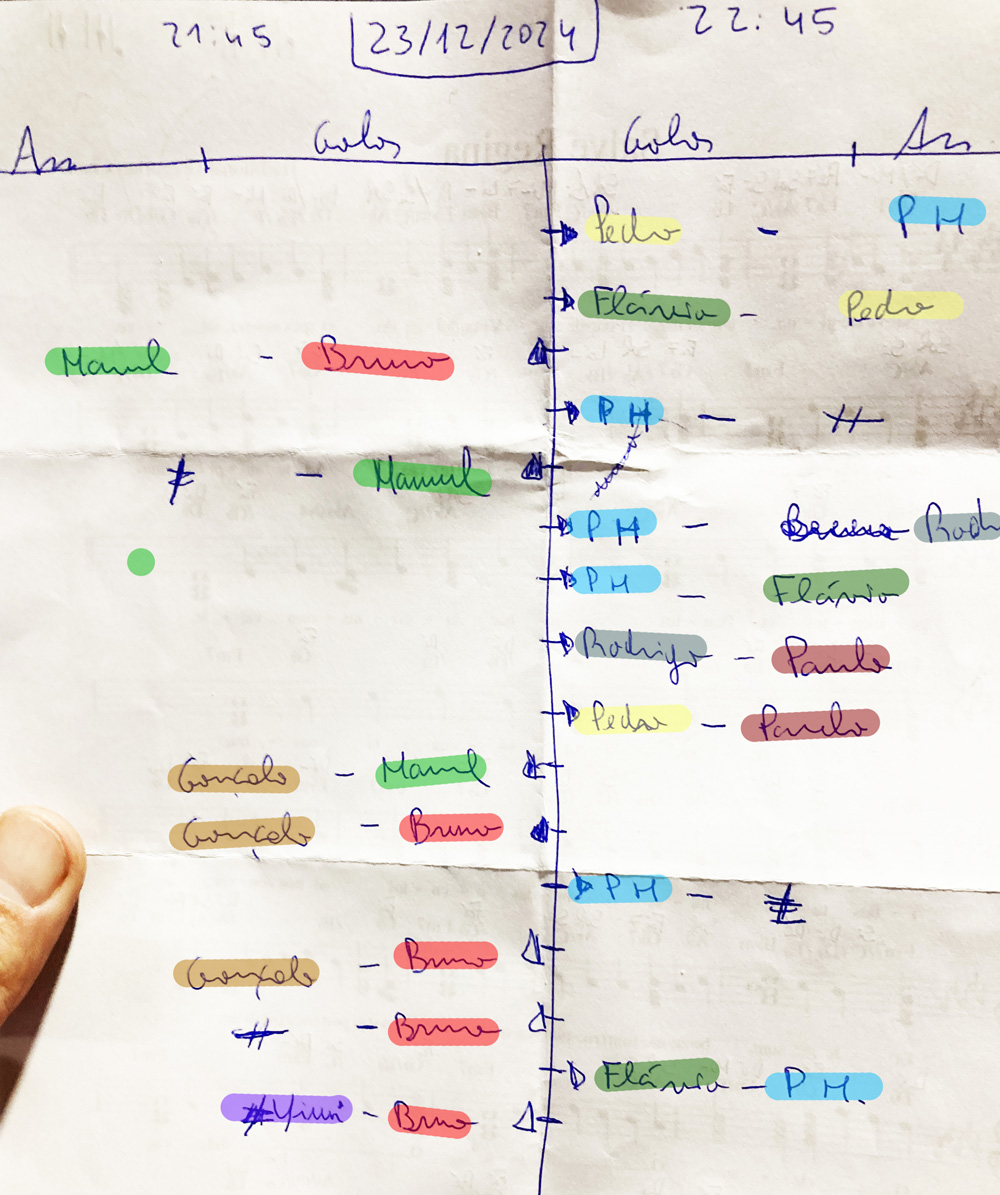 21:45 23/12/2024 22:45
Ass Golos Golos Ass
Pedro - PH
Flávio - Pedro
Manuel - Bruno
PH - #
# - Manuel
PH - Bruno Rodri
PH - Flávio
Rodrigo - Paulo
Pedro - Paulo
Gonçalo - Manuel
Gonçalo - Bruno
PH - #
Gonçalo - Bruno
# - Bruno
Flávio - PH.
- Bruno